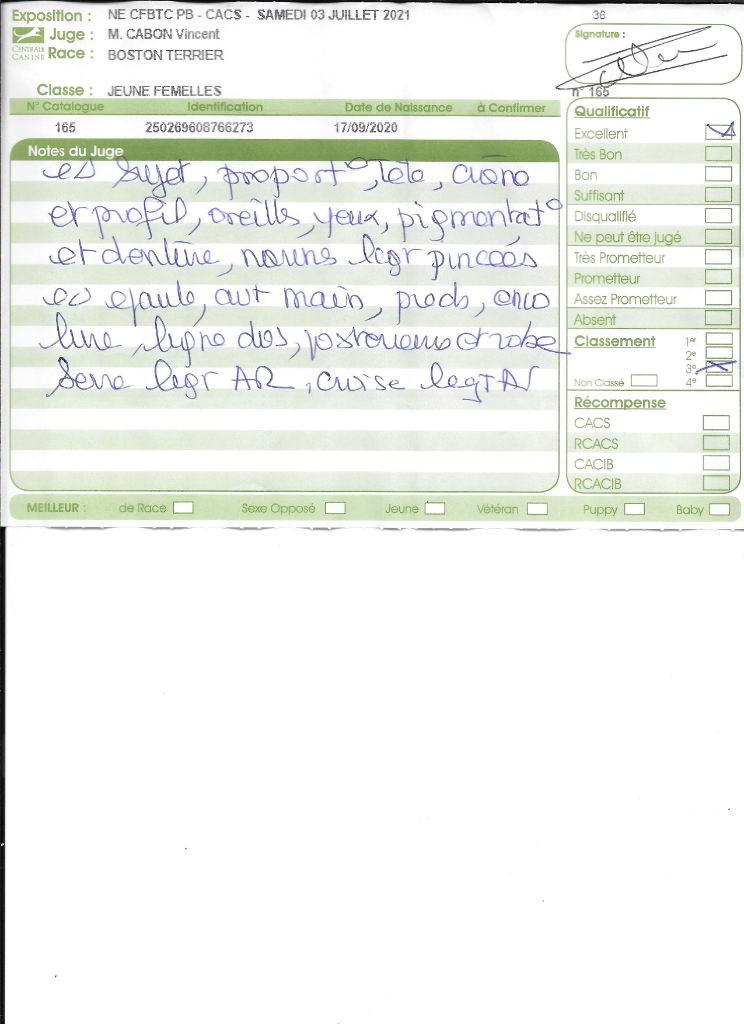 Exposition : NE CFBTC PB - CACS - SAMEDI 03 JUILLET 2021
36
CENTRALE CANINE
Juge : M. CABON Vincent
Race : BOSTON TERRIER
Signature :
n° 165
Classe : JEUNE FEMELLES
N° Catalogue Identification Date de Naissance à Confirmer
165 250269608766273 17/09/2020
Notes du Juge
sujet, proport°, Tete, crâne
et profil, oreilles, yeux, pigmentat°
et dentine, narines legr pincées
epaule, avt main, pieds, enco
lure, ligne dos, et robe
Serre legr AR, croise legr AV
Qualificatif
Excellent
Très Bon
Bon
Suffisant
Disqualifié
Ne peut être jugé
Très Prometteur
Prometteur
Assez Prometteur
Absent
Classement 1er
2e
3e
Non Classé 4e
Récompense
CACS
RCACS
CACIB
RCACIB
MEILLEUR : de Race Sexe Opposé Jeune Vétéran Puppy Baby